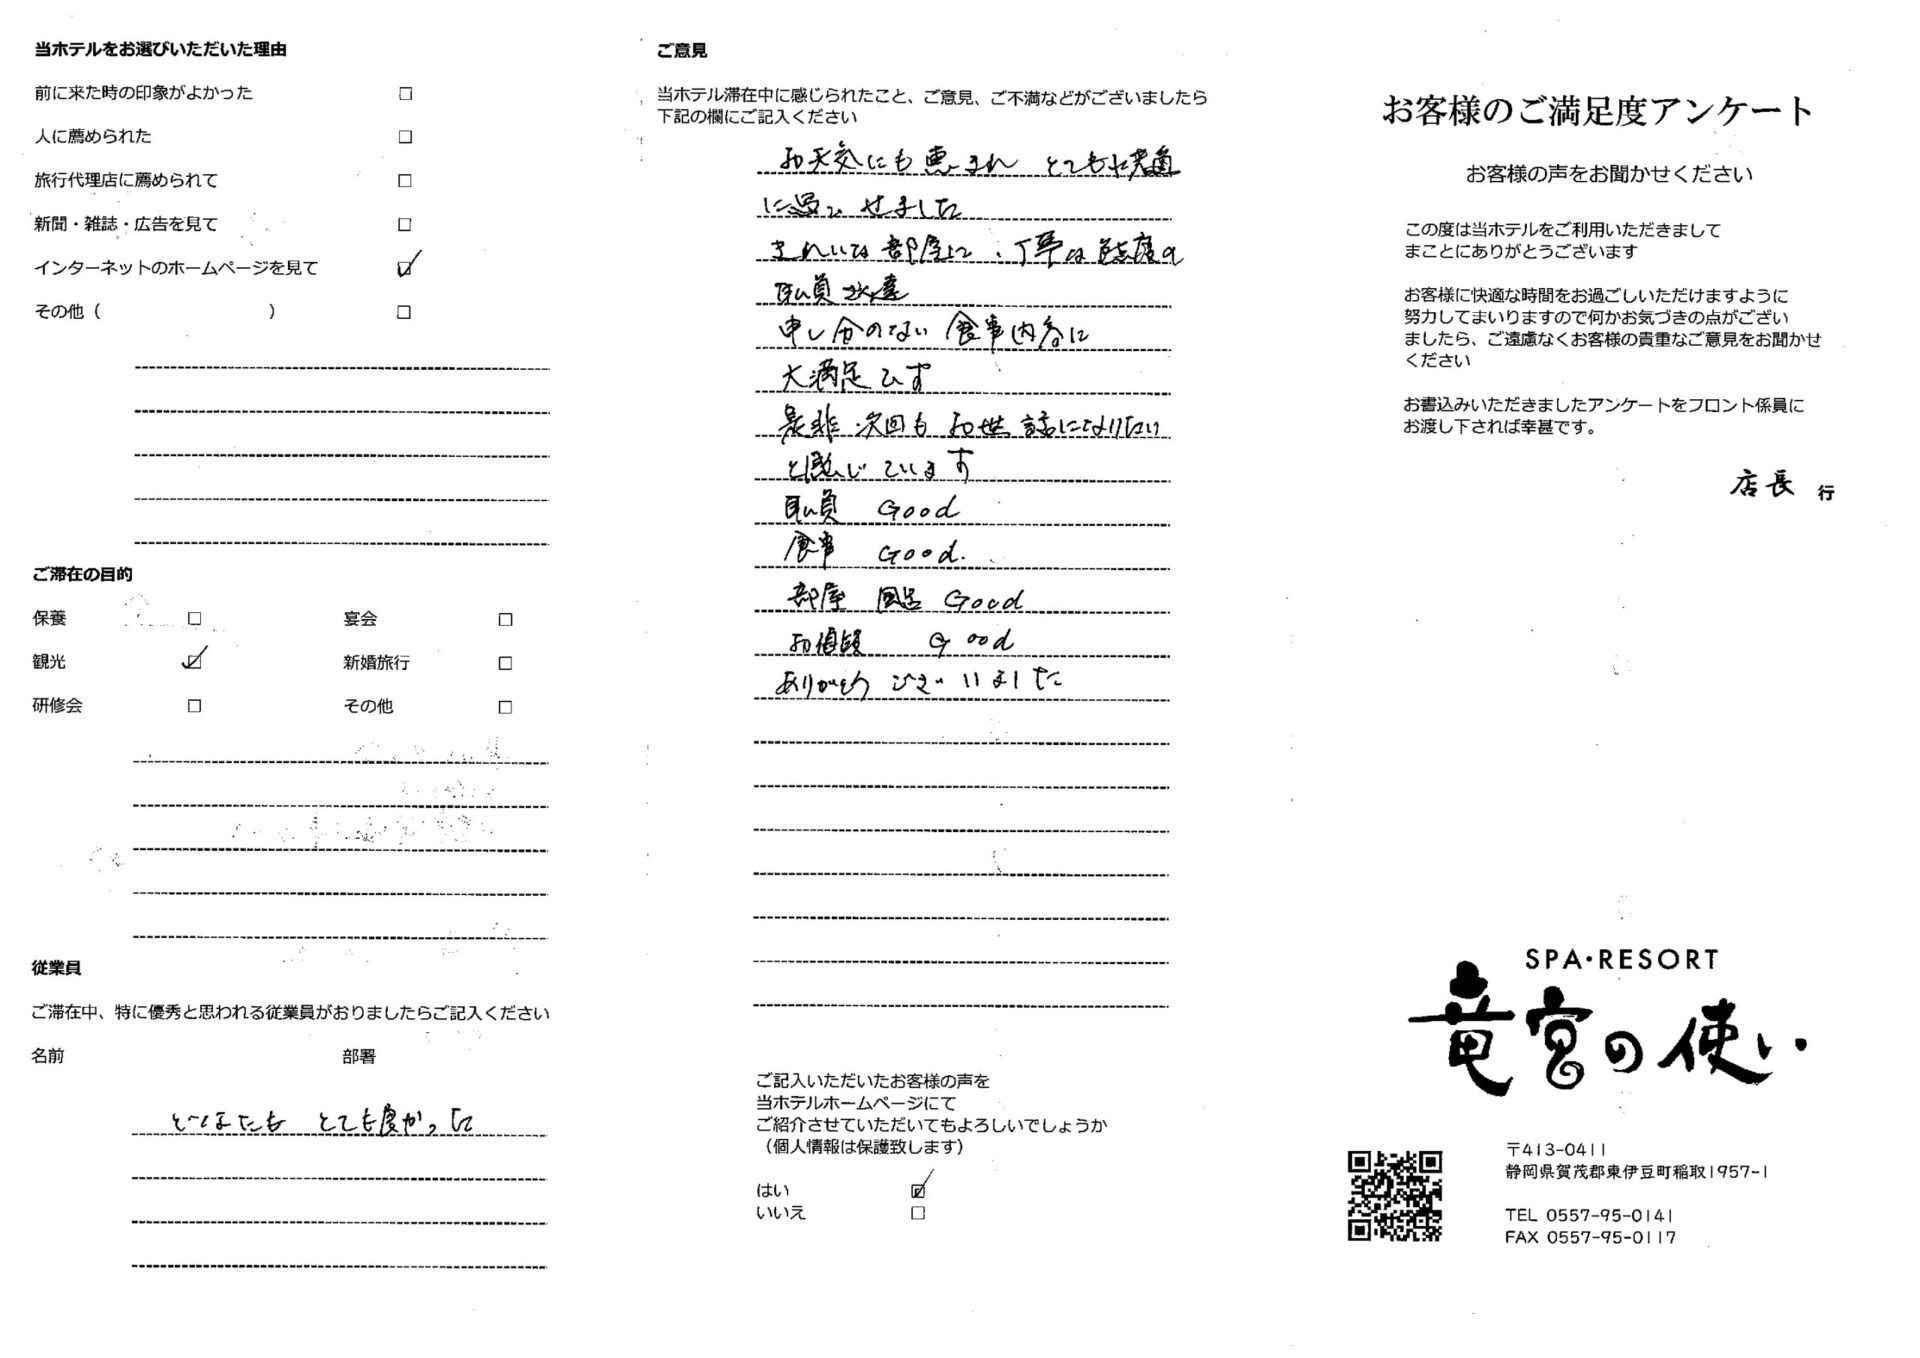 当ホテルをお選びいただいた理由
前に来た時の印象がよかった □
人に薦められた □
旅行代理店に薦められて □
新聞・雑誌・広告を見て □
インターネットのホームページを見て ☑
その他（　　　　　） □
ご滞在の目的
保養 □ 宴会 □
観光 ☑ 新婚旅行 □
研修会 □ その他 □
従業員
ご滞在中、特に優秀と思われる従業員がおりましたらご記入ください
名前 部署
どなたも とても良かった
ご意見
当ホテル滞在中に感じられたこと、ご意見、ご不満などがございましたら
下記の欄にご記入ください
お天気にも恵まれ とても快適
に過ごせました
きれいな部屋に、丁寧な態度の
職員様達
申し分のない 食事内容に
大満足です
是非 次回も お世話になりたい
と感じています
職員 Good
食事 Good.
部屋 風呂 Good
お値段 Good
ありがとうございました
ご記入いただいたお客様の声を
当ホテルホームページにて
ご紹介させていただいてもよろしいでしょうか
（個人情報は保護致します）
はい ☑
いいえ □
お客様のご満足度アンケート
お客様の声をお聞かせください
この度は当ホテルをご利用いただきまして
まことにありがとうございます
お客様に快適な時間をお過ごしいただけますように
努力してまいりますので何かお気づきの点がござい
ましたら、ご遠慮なくお客様の貴重なご意見をお聞かせ
ください
お書込みいただきましたアンケートをフロント係員に
お渡し下されば幸甚です。
店長 行
SPA・RESORT
竜宮の使い
〒413-0411
静岡県賀茂郡東伊豆町稲取1957-1
TEL 0557-95-0141
FAX 0557-95-0117